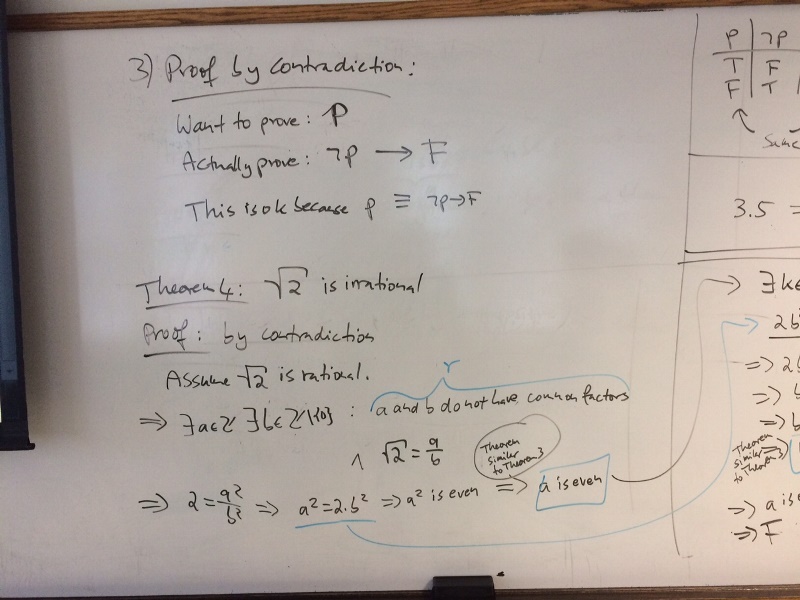 3) Proof by contradiction:
Want to prove: P
Actually prove: ¬p → F
This is ok because p ≡ ¬p→F
Theorem 4: √2 is irrational
Proof: by contradiction
Assume √2 is rational.
r
⇒ ∃a∈ℤ ∃b∈ℤ\{0} : a and b do not have common factors
∧ √2 = a/b
Theorem similar to Theorem 3
⇒ 2 = a²/b² ⇒ a² = 2·b² ⇒ a² is even ⇒ a is even
P | ¬P
T | F
F | T
3.5 =
→ ∃k∈
2b²
⇒ 2b
⇒ b
⇒ b
Theorem
similar
to Theorem 3
⇒
⇒ a is e
⇒ F